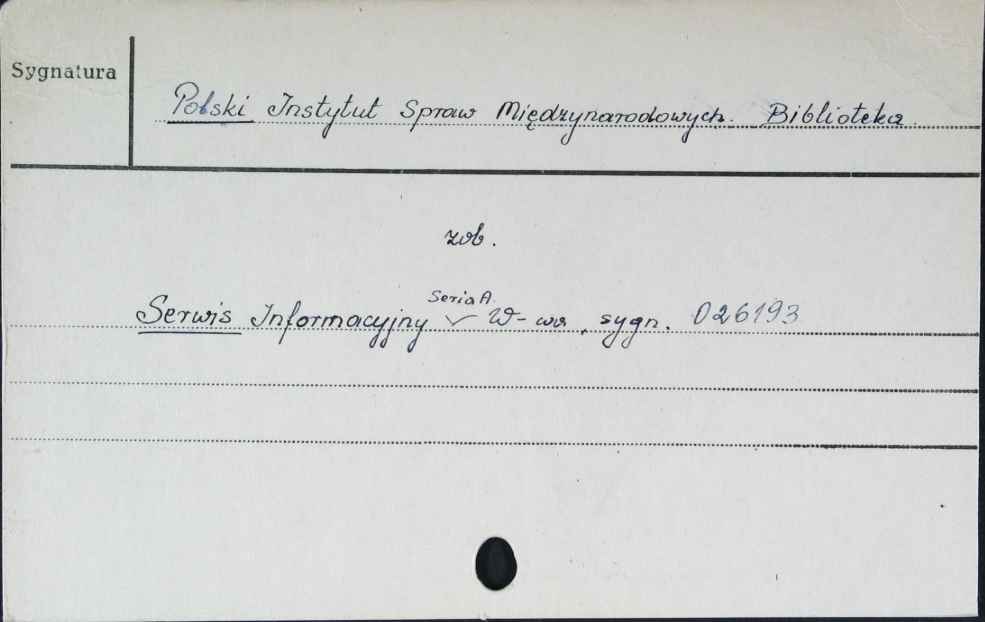 Sygnatura
Polski Instytut Spraw Międzynarodowych. Biblioteka
zob.
Seria A.
Serwis Informacyjny W-wa, sygn. 026193